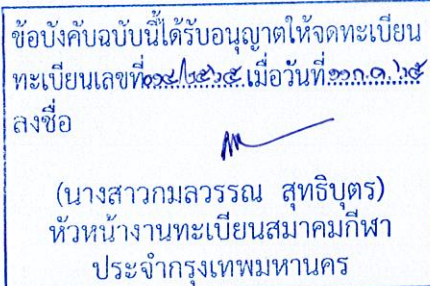 ข้อบังคับฉบับนี้ได้รับอนุญาตให้จดทะเบียน
ทะเบียนเลขที่ เมื่อวันที่
ลงชื่อ
(นางสาวกมลวรรณ สุทธิบุตร)
หัวหน้างานทะเบียนสมาคมกีฬา
ประจำกรุงเทพมหานคร